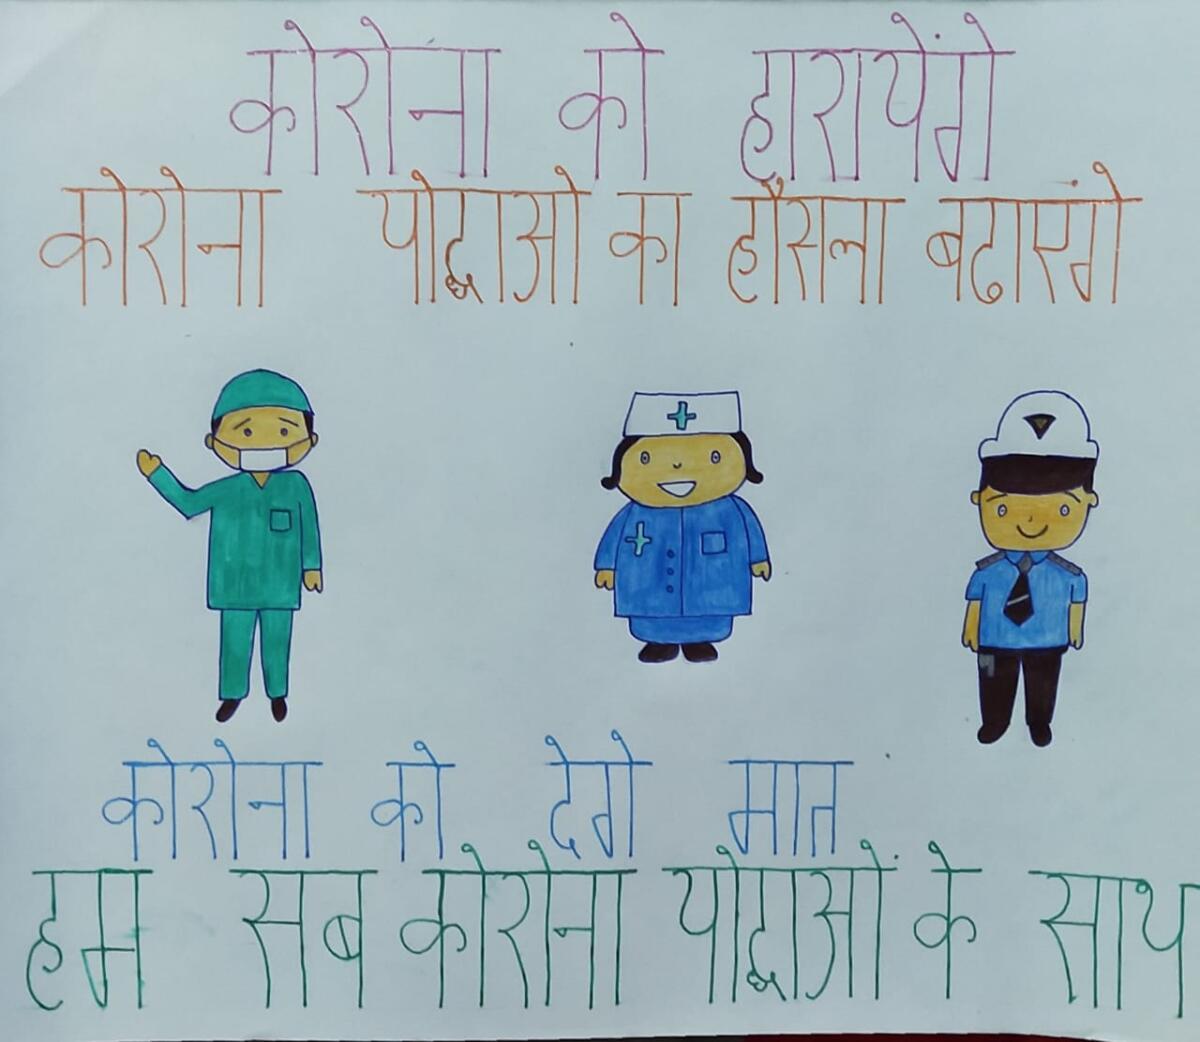 कोरोना को हारायेंगे
कोरोना योद्धाओ का हौसला बढाएंगे
कोरोना को देगे मात
हम सब कोरोना योद्धाओं के साथ